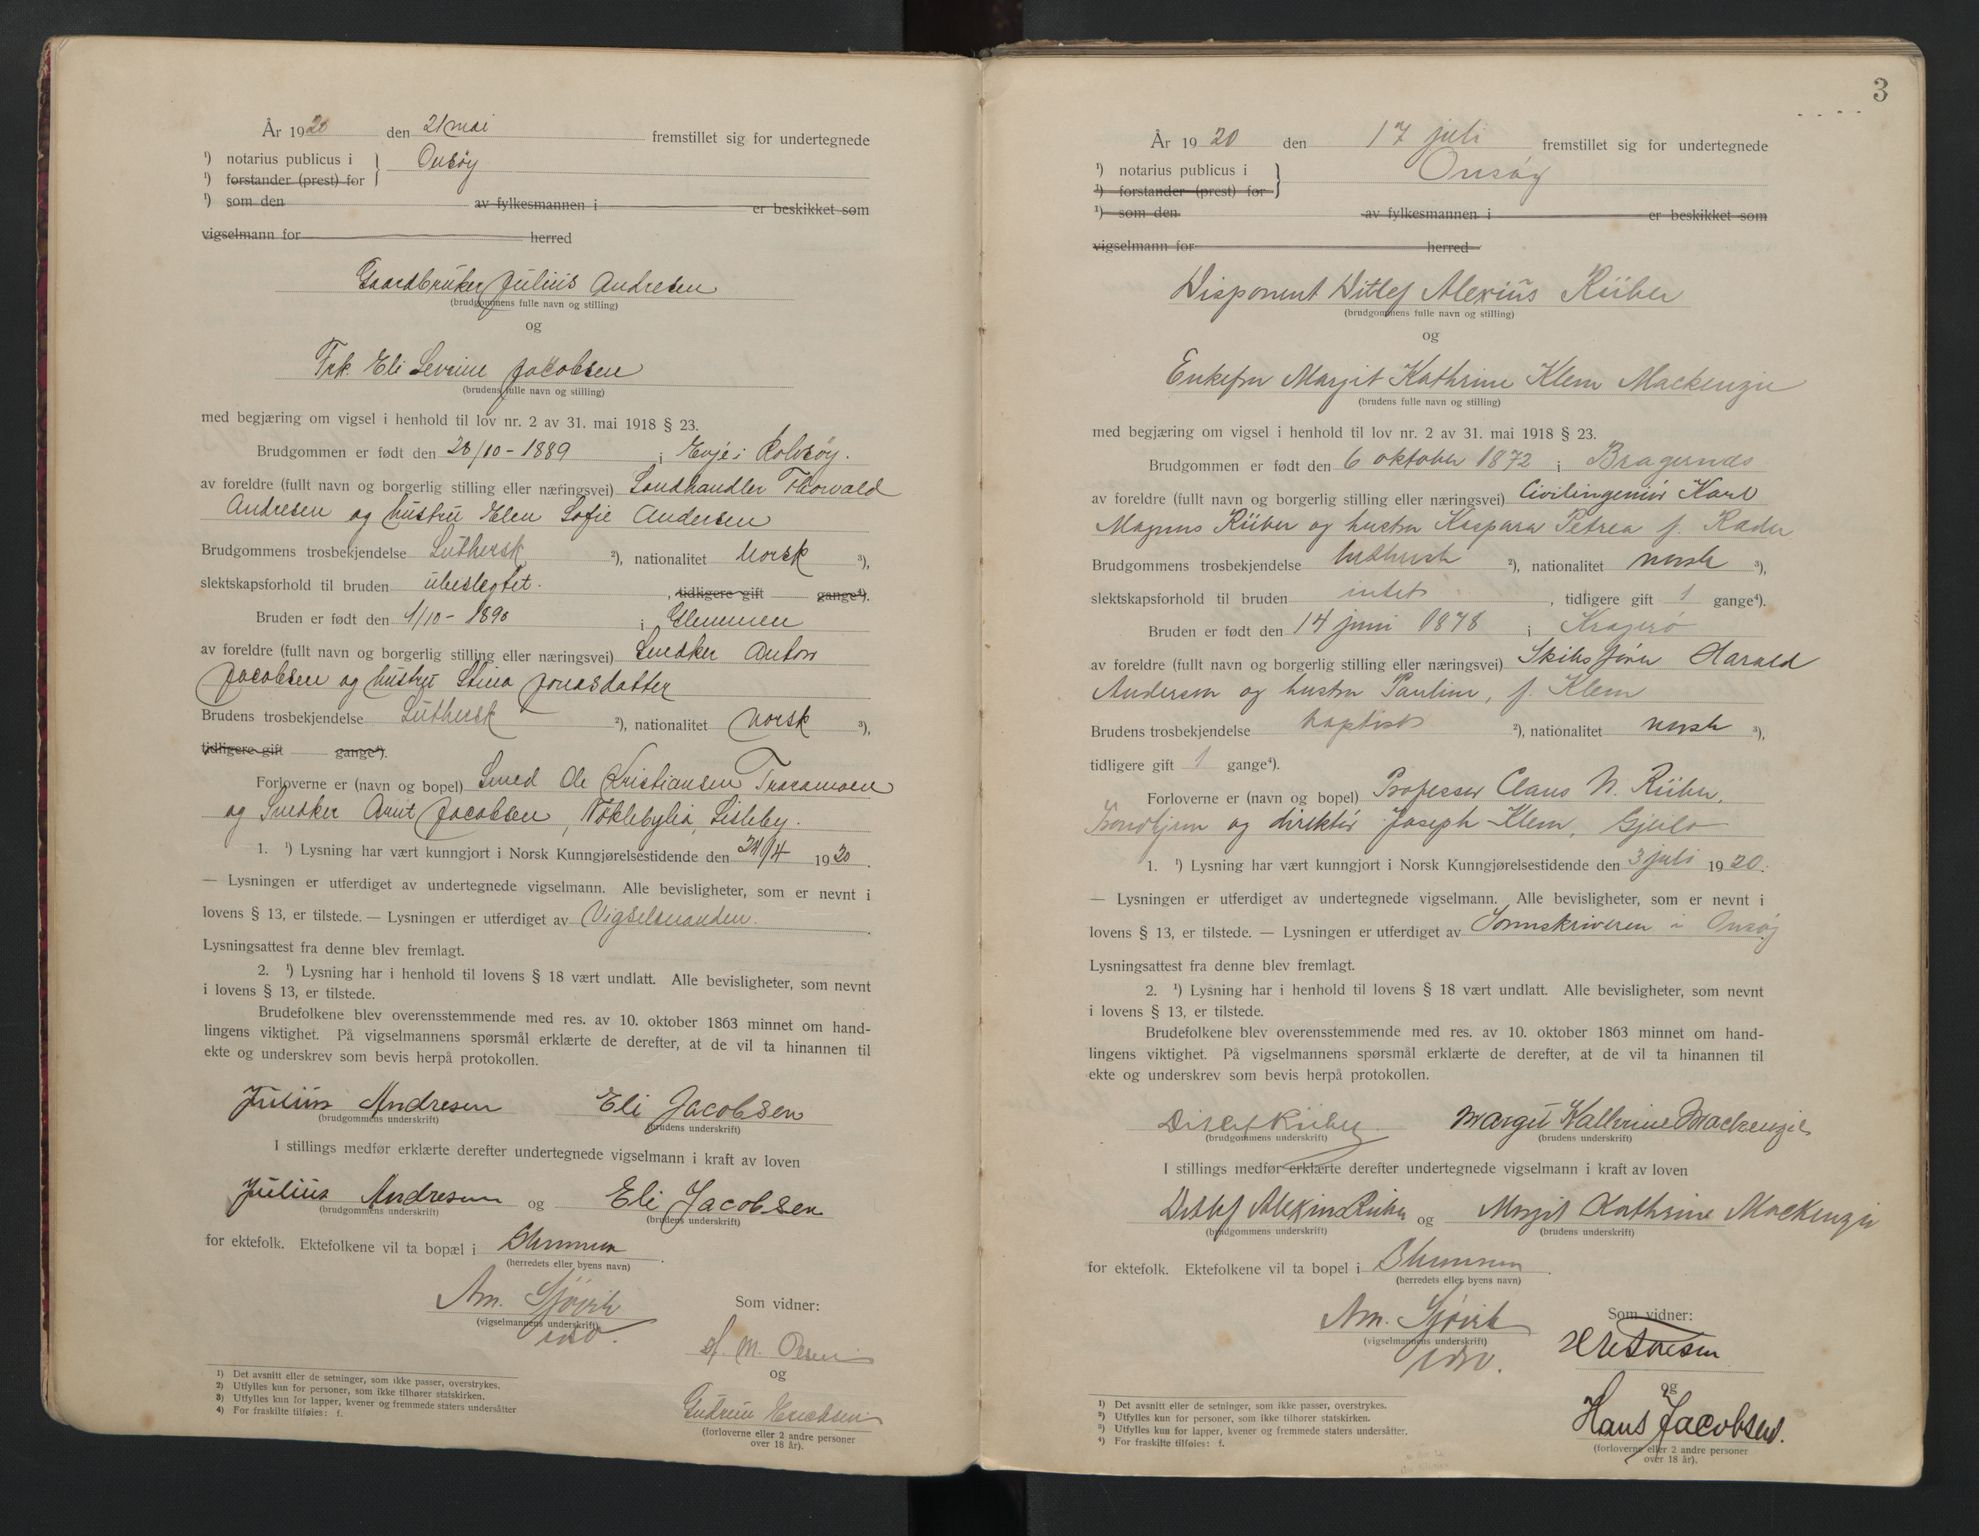 År 1920 den 21 mai fremstillet sig for undertegnede
¹) notarius publicus i } Onsøy
¹) forstander (prest) for
¹) som den av fylkesmannen i er beskikket som
vigselmann for herred
Gaardbruker Julius Andresen
(brudgommens fulle navn og stilling)
og
Frk. Eli Sevrine Jacobsen
(brudens fulle navn og stilling)
med begjæring om vigsel i henhold til lov nr. 2 av 31. mai 1918 § 23.
Brudgommen er født den 28/10 - 1889 i Evje i Rolvsøy.
av foreldre (fullt navn og borgerlig stilling eller næringsvei) Landhandler Thorvald
Andresen og hustru Elen Sofie Andersen
Brudgommens trosbekjendelse Luthersk ²), nationalitet Norsk ³),
slektskapsforhold til bruden ubeslegtet. , tidligere gift gange⁴).
Bruden er født den 1/10 - 1890 i Glemmen
av foreldre (fullt navn og borgerlig stilling eller næringsvei) Snedker Anton
Jacobsen og hustru Stina Jonasdatter
Brudens trosbekjendelse Luthersk ²), nationalitet norsk ³),
tidligere gift gange⁴).
Forloverne er (navn og bopel) Smed Ole Kristiansen Traramoen
og Snedker Arnt Jacobsen, Nøklebylia, Lisleby.
1. ¹) Lysning har vært kunngjort i Norsk Kunngjørelsestidende den 24/4 1920.
— Lysningen er utferdiget av undertegnede vigselmann. Alle bevisligheter, som er nevnt i
lovens § 13, er tilstede. — Lysningen er utferdiget av Vigselsmanden.
Lysningsattest fra denne blev fremlagt.
2. ¹) Lysning har i henhold til lovens § 18 vært undlatt. Alle bevisligheter, som nevnt
i lovens § 13, er tilstede.
Brudefolkene blev overensstemmende med res. av 10. oktober 1863 minnet om hand-
lingens viktighet. På vigselmannens spørsmål erklærte de derefter, at de vil ta hinannen til
ekte og underskrev som bevis herpå protokollen.
Julius Andresen Eli Jacobsen
(brudgommens underskrift) (brudens underskrift)
I stillings medfør erklærte derefter undertegnede vigselmann i kraft av loven
Julius Andresen og Eli Jacobsen
(brudgommens underskrift) (brudens underskrift)
for ektefolk. Ektefolkene vil ta bopæl i Glemmen
(herredets eller byens navn)
Am. Sjøvik Som vidner:
(vigselmannens underskrift)
H. M. Olsen
og
Gudrun Erichsen
(forloverne eller 2 andre personer
over 18 år).
¹) Det avsnitt eller de setninger, som ikke passer, overstrykes.
²) Utfylles kun for personer, som ikke tilhører statskirken.
³) Utfylles kun for lapper, kvener og fremmede staters undersåtter
⁴) For fraskilte tilføies: f.
3
År 1920 den 17 juli fremstillet sig for undertegnede
¹) notarius publicus i } Onsøy
¹) forstander (prest) for
¹) som den av fylkesmannen i er beskikket som
vigselmann for herred
Disponent Ditlef Alexius Rüber
(brudgommens fulle navn og stilling)
og
Enkefru Margit Kathrine Klem Mackenzie
(brudens fulle navn og stilling)
med begjæring om vigsel i henhold til lov nr. 2 av 31. mai 1918 § 23.
Brudgommen er født den 6 oktober 1872 i Bragernes
av foreldre (fullt navn og borgerlig stilling eller næringsvei) Civilingeniør Karl
Magnus Rüber og hustru Kaspara Petrea f. Rader
Brudgommens trosbekjendelse luthersk ²), nationalitet norsk ³),
slektskapsforhold til bruden intet , tidligere gift 1 gange⁴).
Bruden er født den 14 juni 1878 i Kragerø
av foreldre (fullt navn og borgerlig stilling eller næringsvei) Skibsfører Harald
Anderson og hustru Pauline, f. Klem
Brudens trosbekjendelse baptist ²), nationalitet norsk ³),
tidligere gift 1 gange⁴).
Forloverne er (navn og bopel) Professor Claus N. Rüber,
Trondhjem og direktør Joseph Klem, Gjeilo
1. ¹) Lysning har vært kunngjort i Norsk Kunngjørelsestidende den 3 juli 1920.
— Lysningen er utferdiget av undertegnede vigselmann. Alle bevisligheter, som er nevnt i
lovens § 13, er tilstede. — Lysningen er utferdiget av Sorenskriveren i Onsøy
Lysningsattest fra denne blev fremlagt.
2. ¹) Lysning har i henhold til lovens § 18 vært undlatt. Alle bevisligheter, som nevnt
i lovens § 13, er tilstede.
Brudefolkene blev overensstemmende med res. av 10. oktober 1863 minnet om hand-
lingens viktighet. På vigselmannens spørsmål erklærte de derefter, at de vil ta hinannen til
ekte og underskrev som bevis herpå protokollen.
Ditlef Rüber. Margit Kathrine Mackenzie
(brudgommens underskrift) (brudens underskrift)
I stillings medfør erklærte derefter undertegnede vigselmann i kraft av loven
Ditlef Alexius Rüber og Margit Kathrine Mackenzie
(brudgommens underskrift) (brudens underskrift)
for ektefolk. Ektefolkene vil ta bopel i Glemmen.
(herredets eller byens navn)
Am. Sjøvik Som vidner:
(vigselmannens underskrift)
og
Hans Jacobsen.
(forloverne eller 2 andre personer
over 18 år).
¹) Det avsnitt eller de setninger, som ikke passer, overstrykes.
²) Utfylles kun for personer, som ikke tilhører statskirken.
³) Utfylles kun for lapper, kvener og fremmede staters undersåtter.
⁴) For fraskilte tilføies: f.